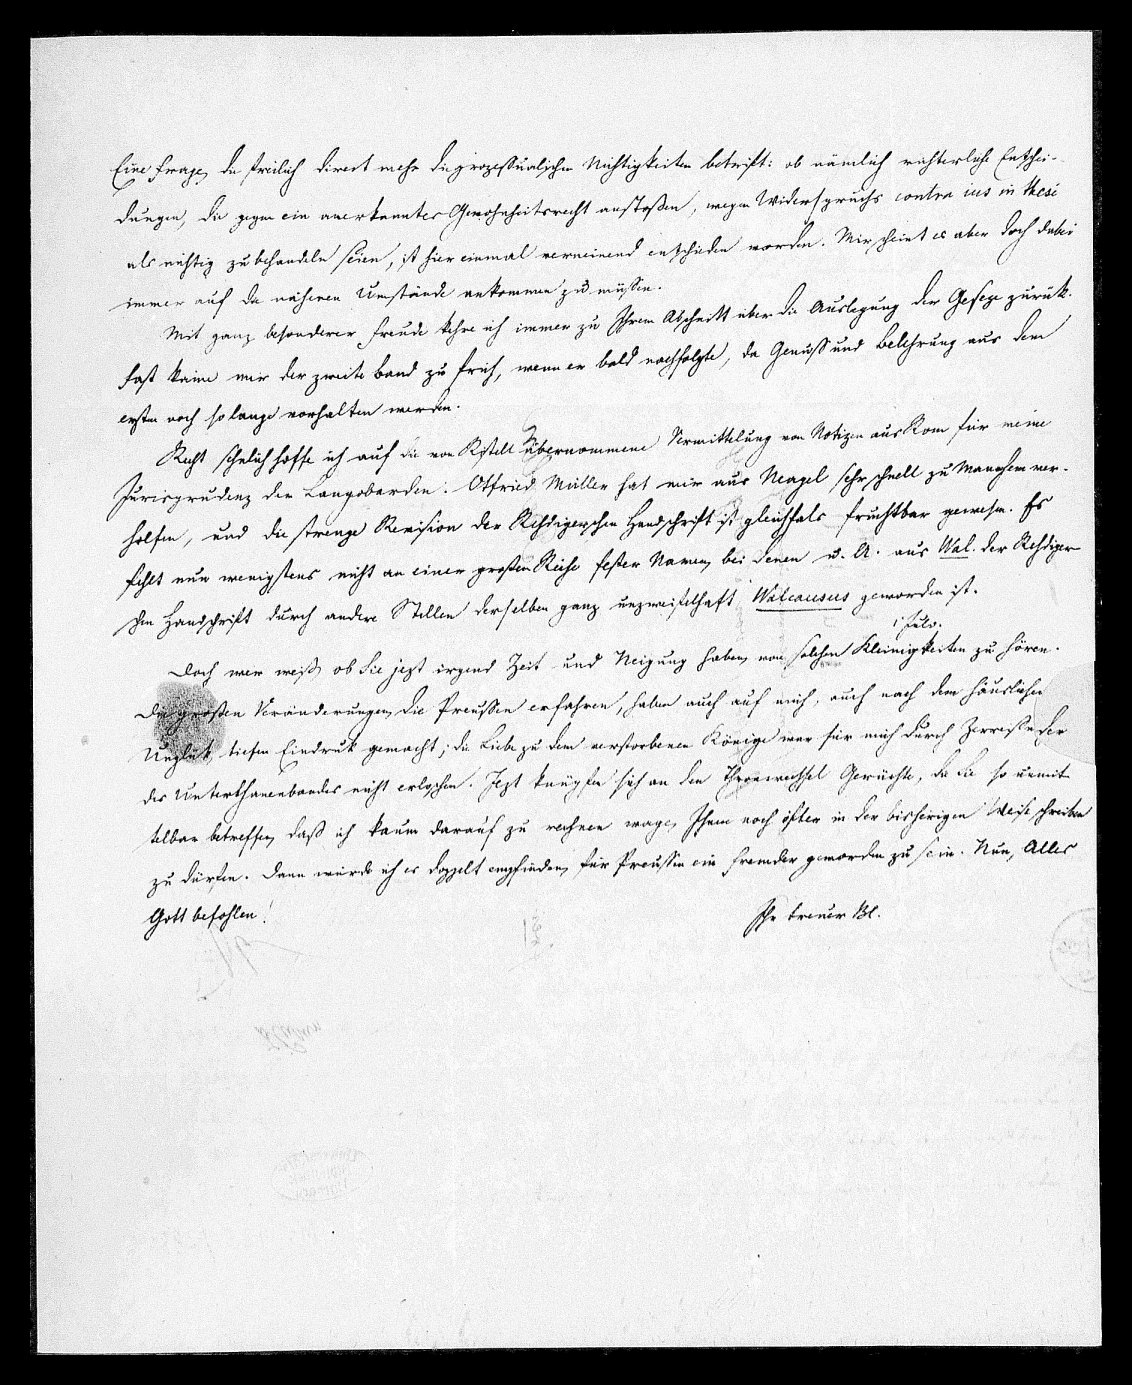 Eine Frage, die freilich direct mehr die prozessualischen Nichtigkeiten betrift: ob nämlich richterliche Entschei-
dungen, die gegen ein anerkanntes Gewohnheitsrecht anstoßen, wegen Widerspruchs contra ius in thesi
als nichtig zu behandeln seien, ist hier einmal verneinend entschieden worden. Mir scheint es aber doch dabei
immer auf die näheren Umstände ankommen zu müssen.
Mit ganz besonderer Freude kehre ich immer zu Ihrem Abschnitt über die Auslegung der Geseze zurük.
Fast käme mir der zweite Band zu früh, wenn er bald nachfolgte, da Genuß und Belehrung aus dem
ersten noch so lange vorhalten werden.
Recht sehnlich hoffe ich auf die von übernommene Vermittelung von Notizen aus Rom für meine
Jurisprudenz der Langobarden. Otfried Müller hat mir aus Neapel sehr schnell zu Manchem ver-
holfen, und die strenge Revision der Rehdigerschen Handschrift ist gleichfals fruchtbar gewesen. Es
fehlt nun wenigstens nicht an einer großen Reihe fester Namen, bei denen u. A. aus Wal. der Rehdiger-
schen Handschrift durch andere Stellen derselben ganz unzweifelhaft Walcausus geworden ist.
Doch wer weiß, ob Sie jezt irgend Zeit und Neigung haben, von solchen Kleinigkeiten zu hören.
Die großen Veränderungen, die Preußen erfahren, haben auch auf mich, auch nach dem häuslichen
Unglük, tiefen Eindruk gemacht; die Liebe zu dem verstorbenen Könige war für mich durch Zerreißen
des Unterthanenbandes nicht erloschen. Jezt knüpfen sich an den Thronwechsel Gerüchte, die Sie so unmit-
telbar betreffen, daß ich kaum darauf zu rechnen wage, Ihnen noch öfter in der bisherigen Weise schreiben
zu dürfen. Dann würde ich es doppelt empfinden, für Preußen ein Fremder geworden zu sein. Nun, Alles
Gott befohlen!
Ihr treuer Bl.